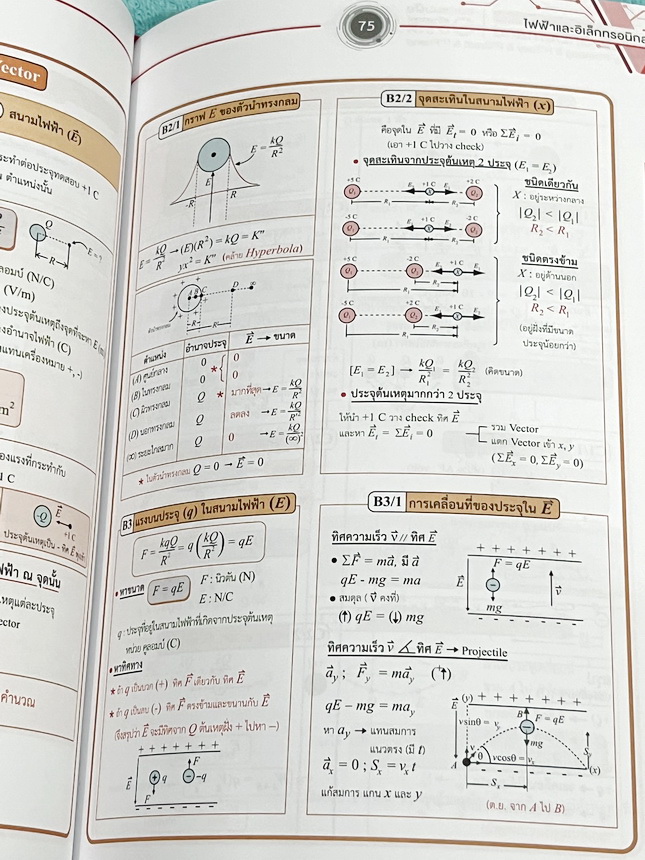 75
ไฟฟ้าและอิเล็กทรอนิกส
Vector
สนามไฟฟ้า (E⃗)
ระทำต่อประจุทดสอบ +1 C
ตำแหน่งนั้น
Q
R
ลอมบ์ (N/C)
(V/m)
m²
องแรงที่กระทำกับ
-Q
E⃗
+1 C
ฟฟ้า ณ จุดนั้น
เหตุแต่ละประจุ
ector
คำนวณ
B2/1 กราฟ E ของตัวนำทรงกลม
E = kQ/R²
E
-R
R
E = kQ/R² → (E)(R²) = kQ = K"
yx² = K" (คล้าย Hyperbola)
ตำแหน่ง อำนาจประจุ E⃗ → ขนาด
(A) ศูนย์กลาง 0 * 0
(B) ในทรงกลม 0 0
(C) ผิวทรงกลม Q * มากที่สุด → E = kQ/R²
(D) นอกทรงกลม Q ลดลง → E = kQ/R'²
(∞) ระยะไกลมาก Q 0 → E = kQ/(∞)²
* ในตัวนำทรงกลม Q = 0 → E⃗ = 0
B2/2 จุดสะเทินในสนามไฟฟ้า (x)
คือจุดใน E⃗ ที่มี E⃗t = 0 หรือ ΣE⃗i = 0
(เอา +1 C ไปวาง check)
• จุดสะเทินจากประจุต้นเหตุ 2 ประจุ (E₁ = E₂)
+5 C +1 C +2 C
Q₁ E₂ E₁ Q₂
R₁ R₂
ชนิดเดียวกัน
X : อยู่ระหว่างกลาง
|Q₂| < |Q₁|
R₂ < R₁
-5 C +1 C -2 C
Q₁ Q₂
R₁ R₂
+5 C -2 C +1 C
Q₁ Q₂ E₂ E₁
R₂
R₁
ชนิดตรงข้าม
X : อยู่ด้านนอก
|Q₂| < |Q₁|
R₂ < R₁
(อยู่ฝั่งที่มีขนาด
ประจุน้อยกว่า)
-5 C +2 C +1 C
Q₁ Q₂
R₂
R₁
[E₁ = E₂] → kQ₁/R₁² = kQ₂/R₂² (คิดขนาด)
• ประจุต้นเหตุมากกว่า 2 ประจุ
ให้นำ +1 C วาง check ทิศ E⃗
และหา E⃗t = ΣE⃗i = 0
รวม Vector
แตก Vector เข้า x, y
(ΣE⃗x = 0, ΣE⃗y = 0)
B3 แรงบนประจุ (q) ในสนามไฟฟ้า (E)
F = kqQ/R² = q(kQ/R²) = qE
• หาขนาด F = qE
F : นิวตัน (N)
E : N/C
q : ประจุที่อยู่ในสนามไฟฟ้าที่เกิดจากประจุต้นเหตุ
หน่วย คูลอมบ์ (C)
• หาทิศทาง
* ถ้า q เป็นบวก (+) ทิศ F⃗ เดียวกับ ทิศ E⃗
* ถ้า q เป็นลบ (-) ทิศ F⃗ ตรงข้ามและขนานกับ E⃗
(จึงสรุปว่า E⃗ จะมีทิศจาก Q ต้นเหตุฝั่ง + ไปหา −)
+ + + + + + + +
E⃗ q F -q
F
B3/1 การเคลื่อนที่ของประจุใน E⃗
ทิศความเร็ว v⃗ // ทิศ E⃗
• ΣF⃗ = ma⃗, มี a⃗
qE - mg = ma
• สมดุล ( v⃗ คงที่)
(↑) qE = (↓) mg
+ + + + + + +
F = qE
E⃗ v⃗
mg
ทิศความเร็ว v⃗ ∠ ทิศ E⃗ → Projectile
a⃗y ; F⃗y = ma⃗y (↑)
qE - mg = may
หา ay → แทนสมการ
แนวตรง (มี t)
a⃗x = 0 ; Sx = vx t
แก้สมการ แกน x และ y
(y) + + + + + + +
E⃗
vsinθ = vy
B F = qE
mg
v
θ vcosθ = vx
Sy
A (x)
Sx
(ต.ย. จาก A ไป B)